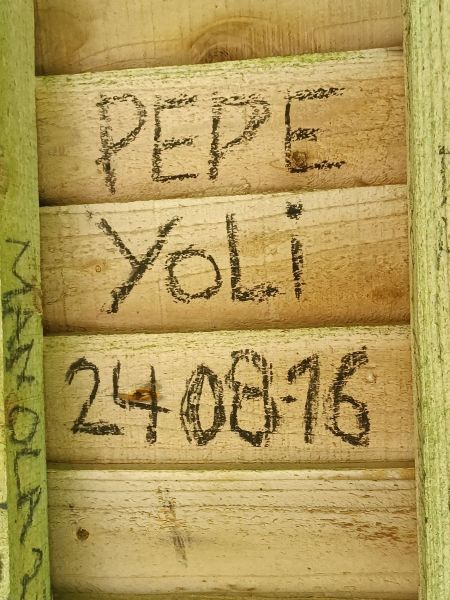 PEPE
YOLi
24(08-16
MANOLA